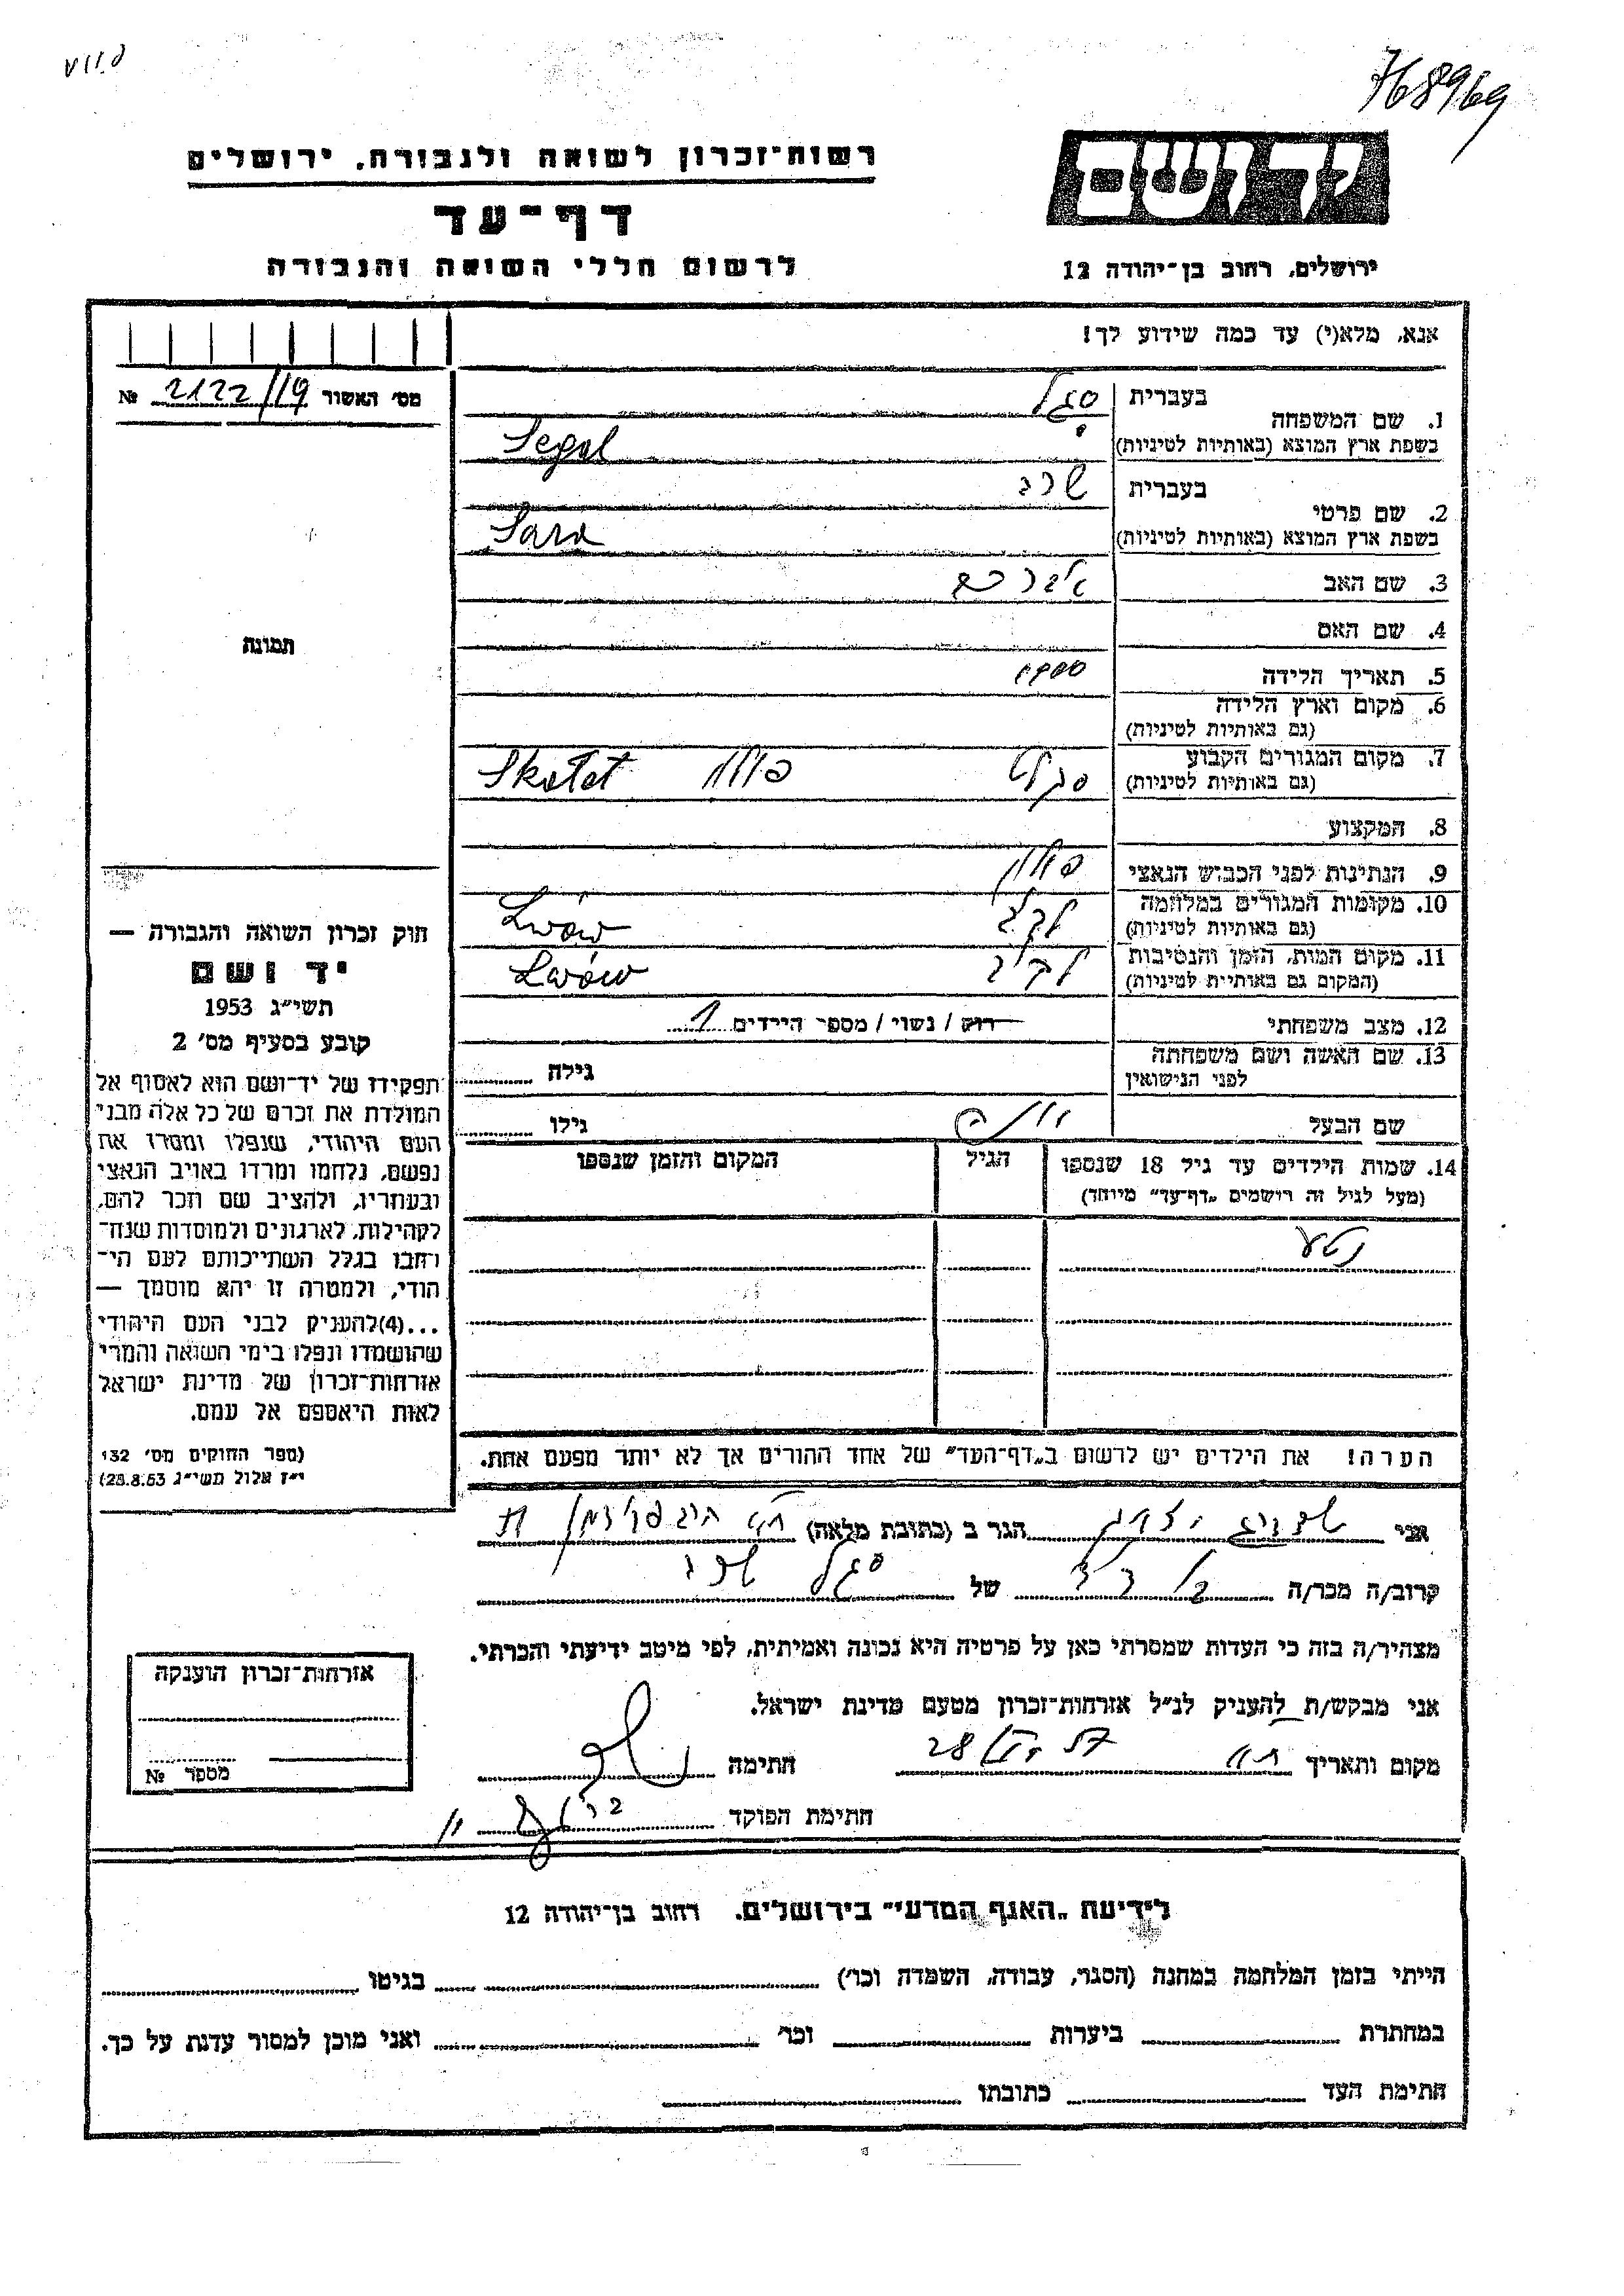 768969
רשות־זכרון לשואה ולגבורה, ירושלים
יד ושם
דף־עד
לרשום חללי השואה והגבורה
ירושלים, רחוב בן־יהודה 12
אנא, מלא(י) עד כמה שידוע לך!
מס׳ האשור 2122/19 №
1. שם המשפחה
בעברית סגל
בשפת ארץ המוצא (באותיות לטיניות) Segal
2. שם פרטי
בעברית שרה
בשפת ארץ המוצא (באותיות לטיניות) Sara
3. שם האב אברהם
4. שם האם
5. תאריך הלידה 1900
6. מקום וארץ הלידה
(גם באותיות לטיניות)
7. מקום המגורים הקבוע
(גם באותיות לטיניות) פולין Skalat
8. המקצוע
9. הנתינות לפני הכבוש הנאצי פולין
10. מקומות המגורים במלחמה
(גם באותיות לטיניות) לבוב Lwów
11. מקום המות, הזמן והנסיבות
(המקום גם באותיות לטיניות) לבוב Lwów
12. מצב משפחתי רוק / נשוי / מספר הילדים 1
13. שם האשה ושם משפחתה
לפני הנישואין גילה
שם הבעל גילו
14. שמות הילדים עד גיל 18 שנספו הגיל המקום והזמן שנספו
(מעל לגיל זה רושמים „דף־עד״ מיוחד)
נטע
הערה! את הילדים יש לרשום ב„דף־העד״ של אחד ההורים אך לא יותר מפעם אחת.
תמונה
חוק זכרון השואה והגבורה —
יד ושם
תשי״ג 1953
קובע בסעיף מס׳ 2
תפקידו של יד־ושם הוא לאסוף אל
המולדת את זכרם של כל אלה מבני
העם היהודי, שנפלו ומסרו את
נפשם, נלחמו ומרדו באויב הנאצי
ובעוזריו, ולהציב שם וזכר להם,
לקהילות, לארגונים ולמוסדות שנח־
רבו בגלל השתייכותם לעם הי־
הודי, ולמטרה זו יהא מוסמך —
...(4) להעניק לבני העם היהודי
שהושמדו ונפלו בימי השואה והמרי
אזרחות־זכרון של מדינת ישראל
לאות היאספם אל עמם.
(ספר החוקים מס׳ 132
י״ז אלול תשי״ג 28.8.53)
אני הגר ב (כתובת מלאה)
קרוב/ה מכר/ה של סגל שרה
מצהיר/ה בזה כי העדות שמסרתי כאן על פרטיה היא נכונה ואמיתית, לפי מיטב ידיעתי והכרתי.
אני מבקש/ת להעניק לנ״ל אזרחות־זכרון מטעם מדינת ישראל.
מקום ותאריך 28 חתימה
חתימת הפוקד
אזרחות־זכרון הוענקה
מספר №
לידיעת „האגף המדעי״ בירושלים, רחוב בן־יהודה 12
הייתי בזמן המלחמה במחנה (הסגר, עבודה, השמדה וכו׳) בגיטו
במחתרת ביערות וכו׳ ואני מוכן למסור עדות על כך.
חתימת העד כתובתו